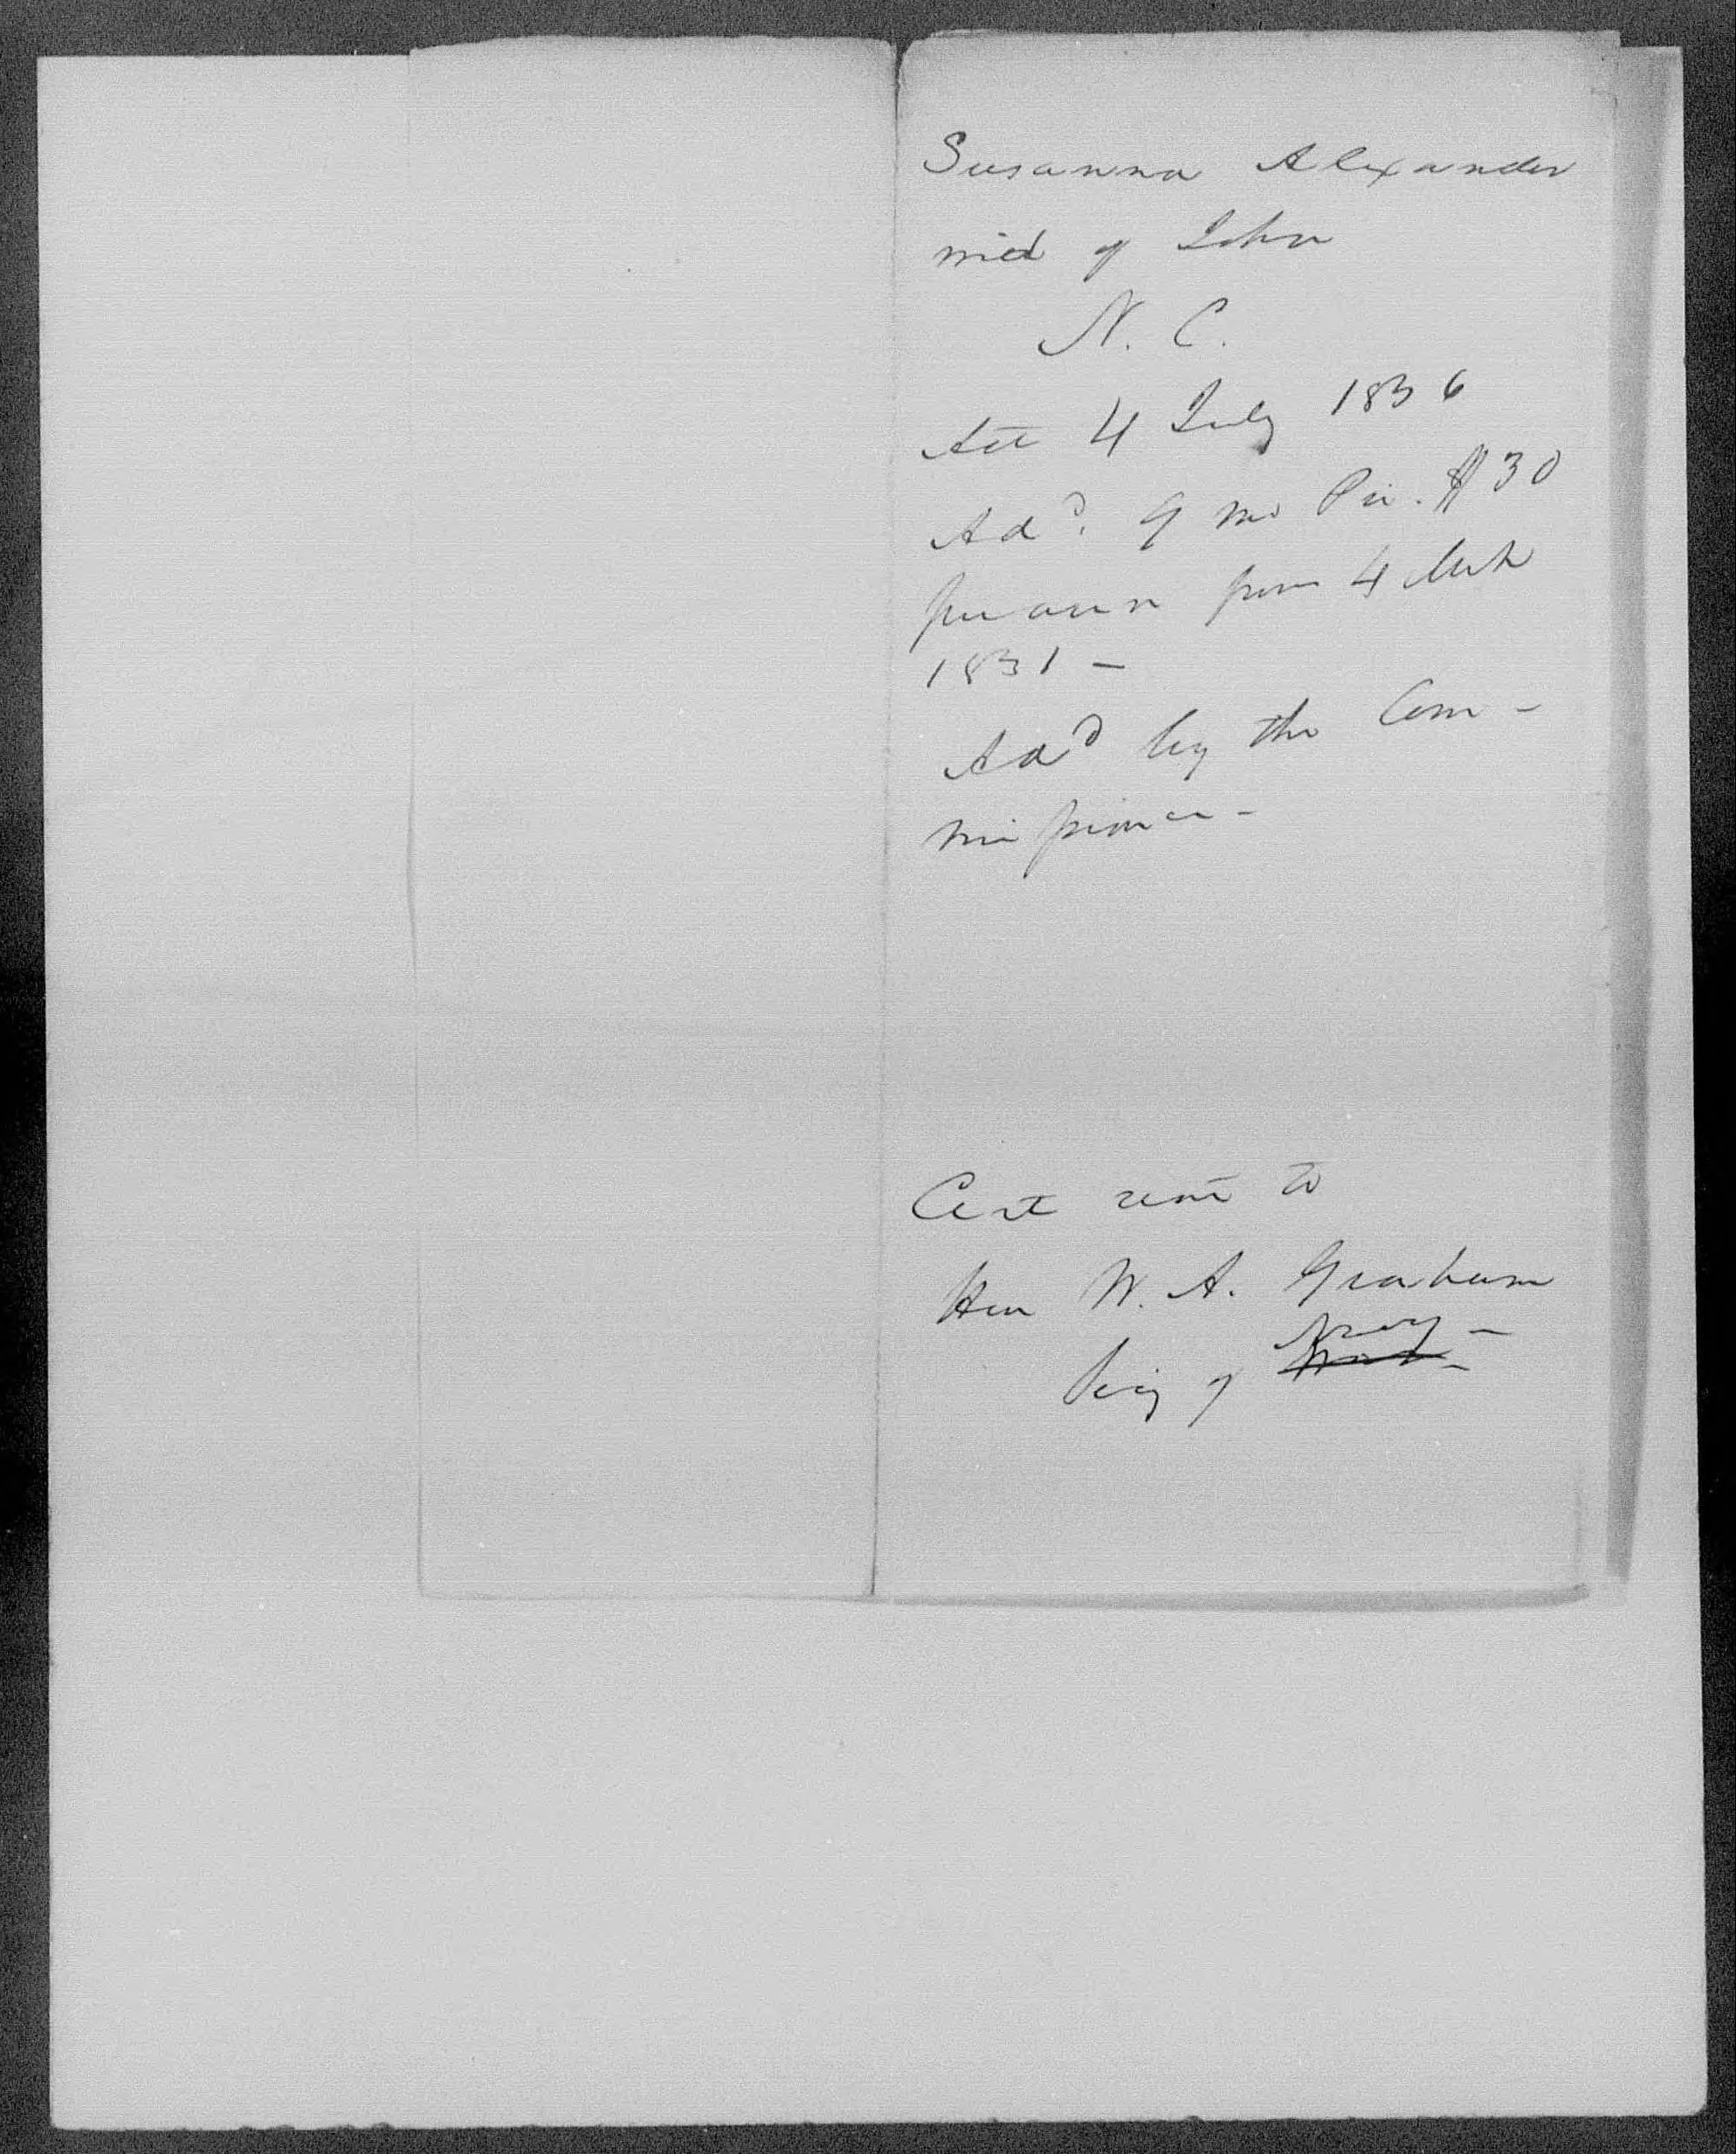 Susanna Alexander
wid of John
N. C.
Act 4 July 1836
Ad.d 9 mo Pri. $30
per ann from 4 Mch
1831 –
Ad.d by the Com –
missioner –
Cert sent to
Hon W. A. Graham
Navy –
Secy of War –